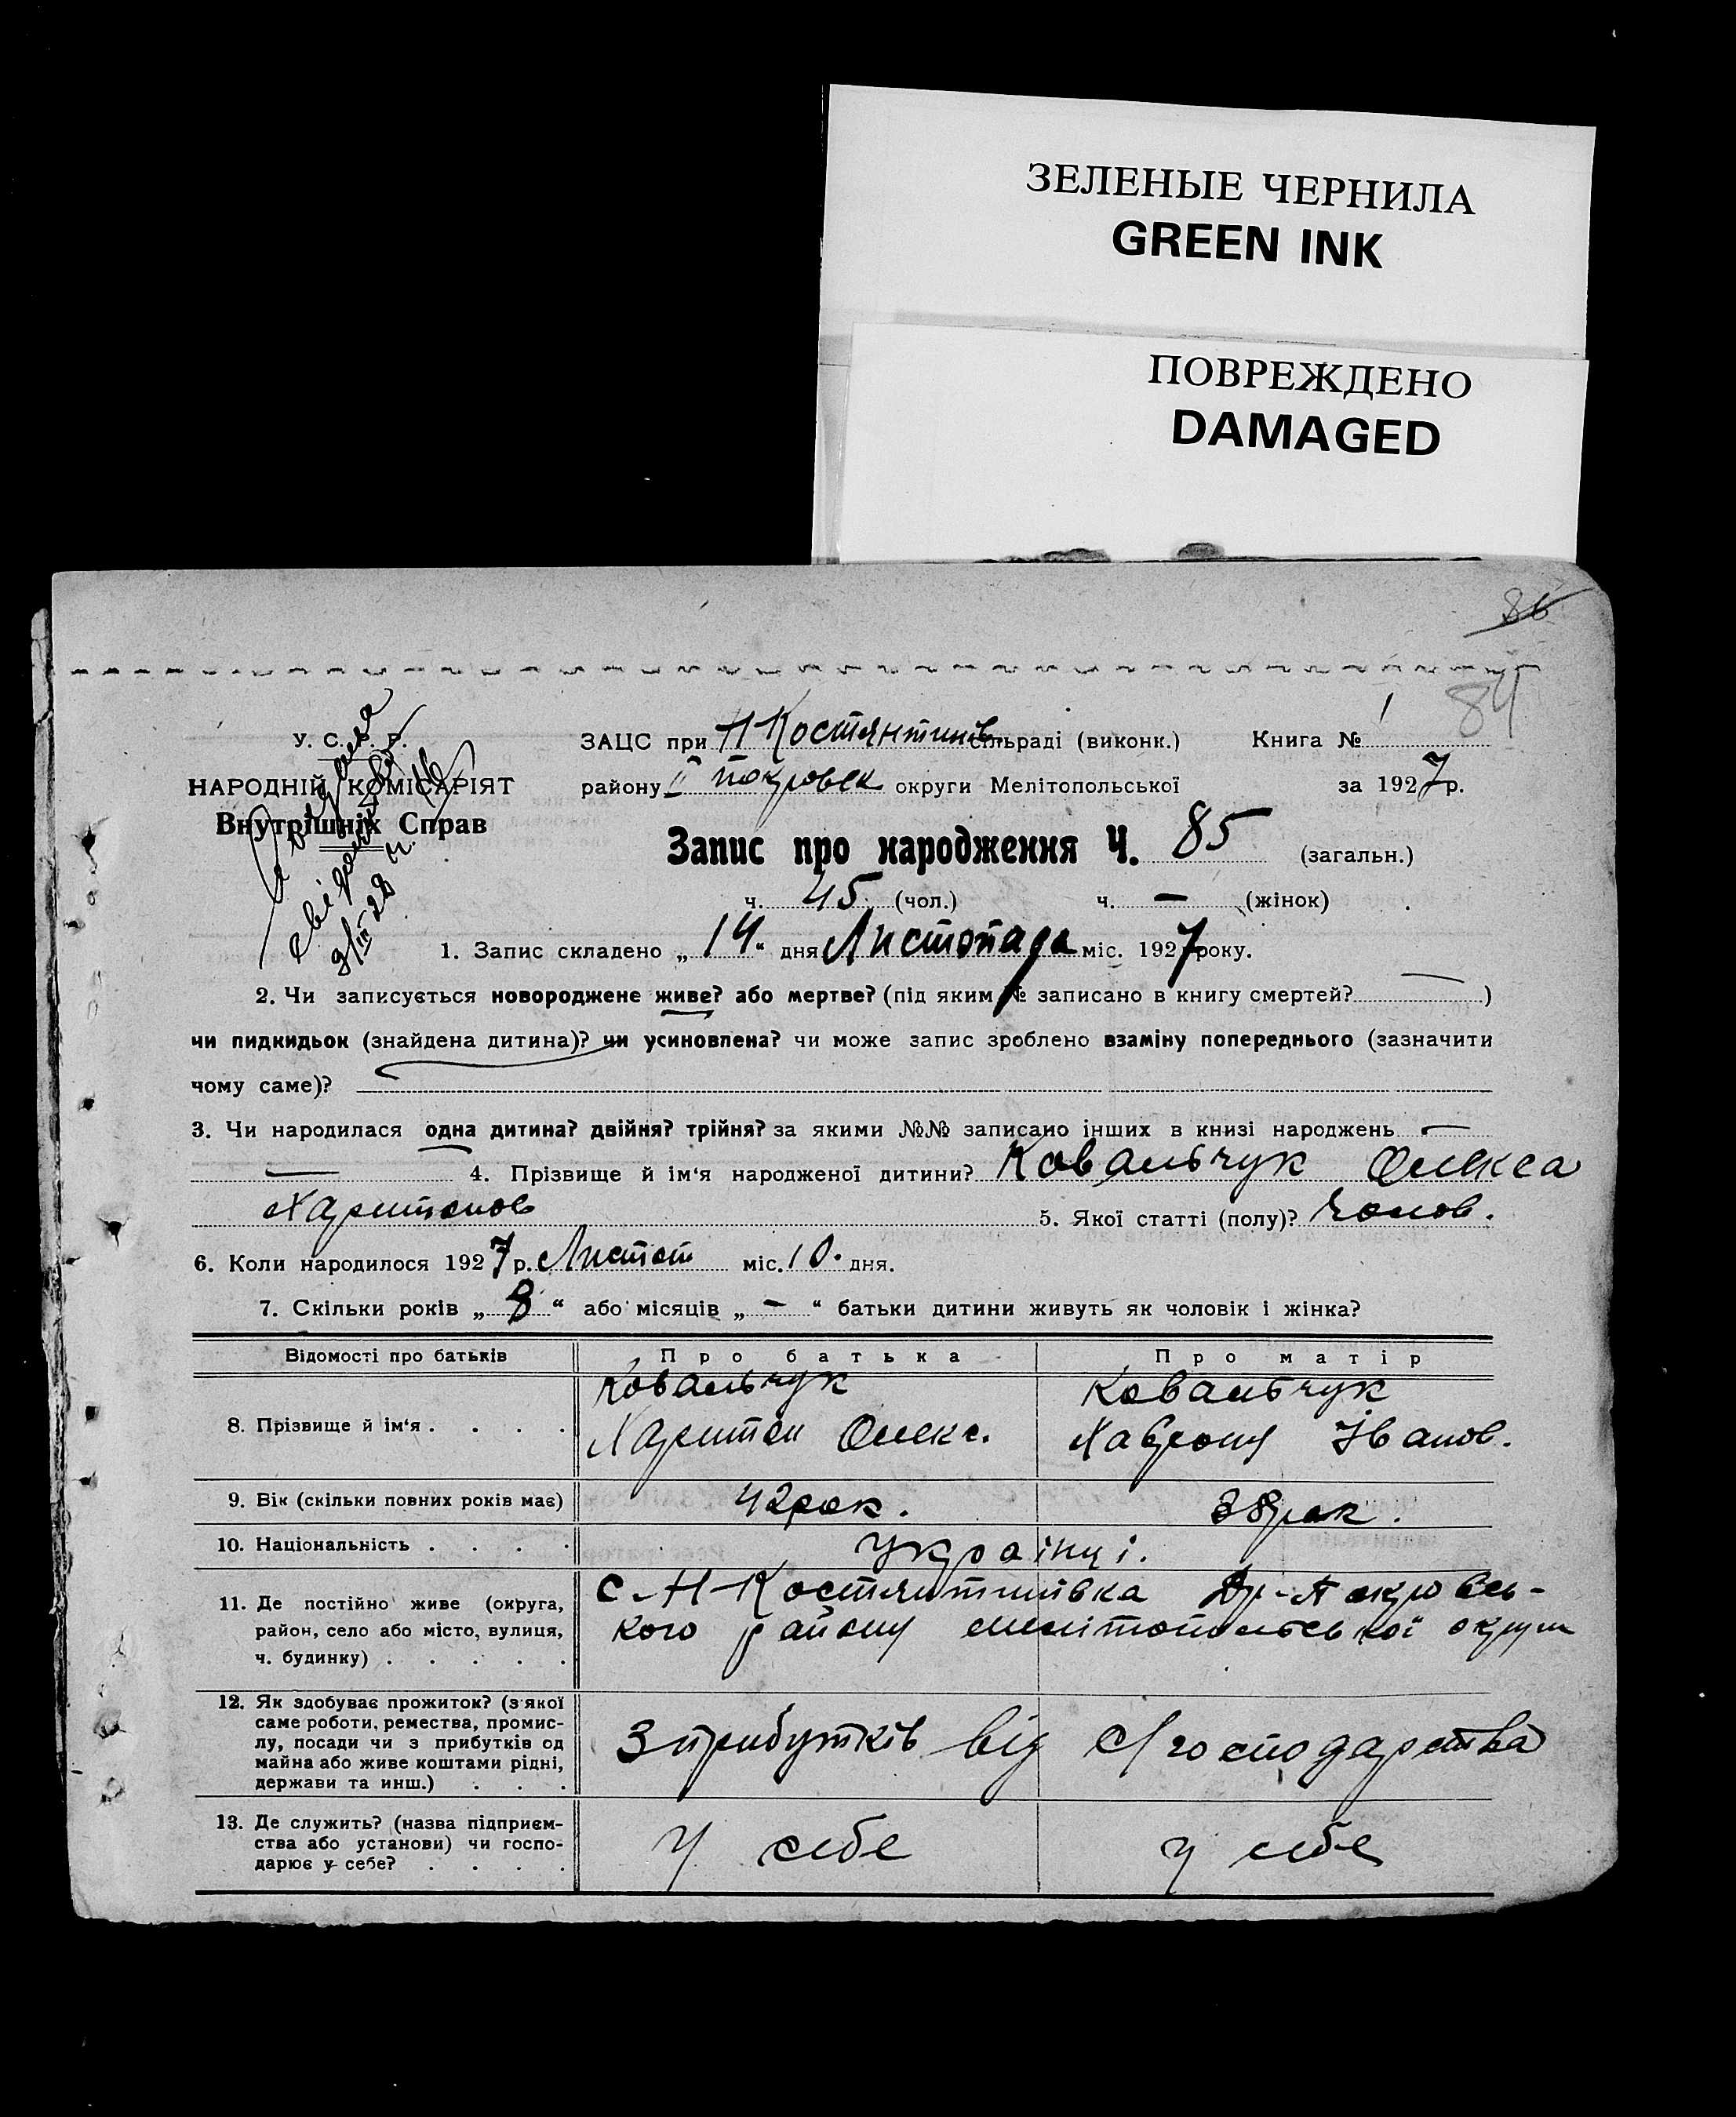 ЗЕЛЕНЫЕ ЧЕРНИЛА
GREEN INK
ПОВРЕЖДЕНО
DAMAGED
86
84
У. С. Р. Р.
НАРОДНІЙ КОМІСАРІЯТ
Внутрішніх Справ
ЗАЦС при Н Костянтинів. сільраді (виконк.) Книга № 1
району ІІ Покровск округи Мелітопольської за 1927 р.
Запис про народження Ч. 85 (загальн.)
ч. 45 (чол.) ч. — (жінок)
1. Запис складено „14“ дня Листопада міс. 1927 року.
2. Чи записується новороджене живе? або мертве? (під яким № записано в книгу смертей? — )
чи пидкидьок (знайдена дитина)? чи усиновлена? чи може запис зроблено взаміну попереднього (зазначити
чому саме)?
3. Чи народилася одна дитина? двійня? трійня? за якими №№ записано інших в книзі народжень —
— 4. Прізвище й ім'я народженої дитини? Ковальчук Олекса
Харитонов 5. Якої статті (полу)? Чолов.
6. Коли народилося 1927 р. Листоп міс. 10. дня.
7. Скільки років „8“ або місяців „—“ батьки дитини живуть як чоловік і жінка?
Відомості про батьків Про батька Про матір
8. Прізвище й ім'я . . . . Ковальчук Ковальчук
Харитон Олекс. Іванов.
9. Вік (скільки повних років має) 42 рок. 38 рок.
10. Національність . . . . Українці.
11. Де постійно живе (округа,
район, село або місто, вулиця,
ч. будинку) . . . . .
с. Н-Костянтинівка Др-Покровсь-
кого району Мелітопольської округи
12. Як здобуває прожиток? (з якої
саме роботи, ремества, промис-
лу, посади чи з прибутків од
майна або живе коштами рідні,
держави та инш.) . . .
З прибутків від С/господарства
13. Де служить? (назва підприєм-
ства або установи) чи госпо-
дарює у себе? . . . .
У себе у себе